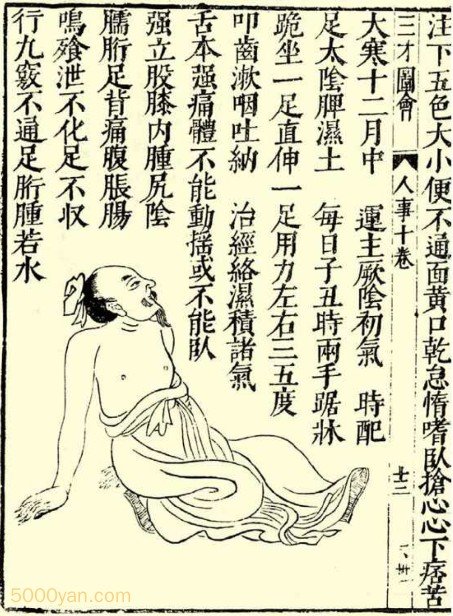 注下五色大小便不通面黃口乾怠惰嗜臥搶心心下痞苦
三才圖會 人事十卷 十二
大寒十二月中 運主厥陰初氣 時配
足太陰脾濕土 每日子丑時兩手踞牀
跪坐一足直伸一足用力左右三五度
叩齒漱咽吐納 治經絡濕積諸氣
舌本强痛體不能動搖或不能臥
强立股膝内腫尻陰
臑胻足背痛腹脹腸
鳴飱泄不化足不収
行九竅不通足胻腫若水
5000yan.com